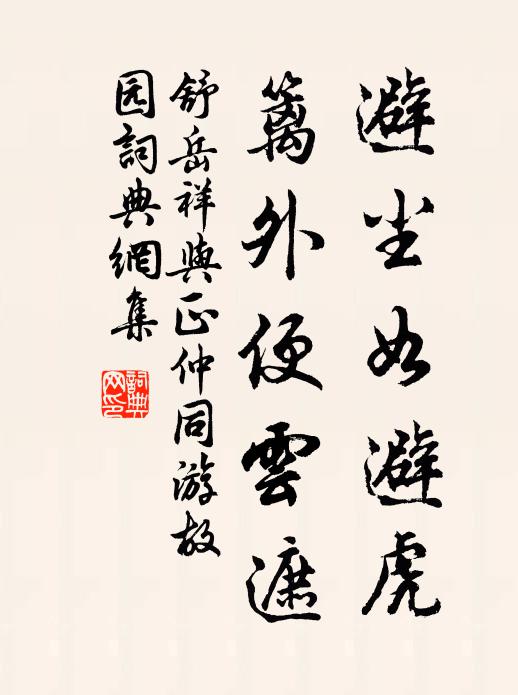 避尘如避虎
篱外便雲遮
舒岳祥與正仲同游故
园詞典網集
詞典网印